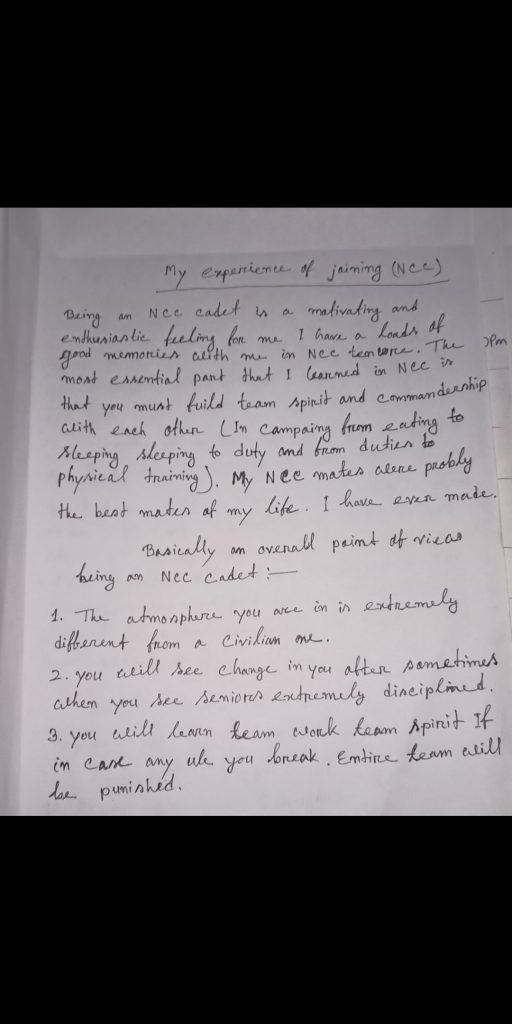 My experience of joining (NCC)
Being an NCC cadet is a mativating and
enthusiastic feeling for me I have a loads of
good memories with me in NCC tenure. The
most essential part that I learned in NCC is
that you must build team spirit and commandership
with each other (In campaing from eating to
sleeping sleeping to duty and from duties to
physical training). My NCC mates were probly
the best mates of my life. I have ever made.
Basically an overall point of view
being an NCC cadet :—
1. The atmosphere you are in is extremely
different from a civilian one.
2. you will see change in you after sometimes
when you see seniors extremely disciplined.
3. you will learn team work team spirit If
in case any ule you break. Entire team will
be punished.